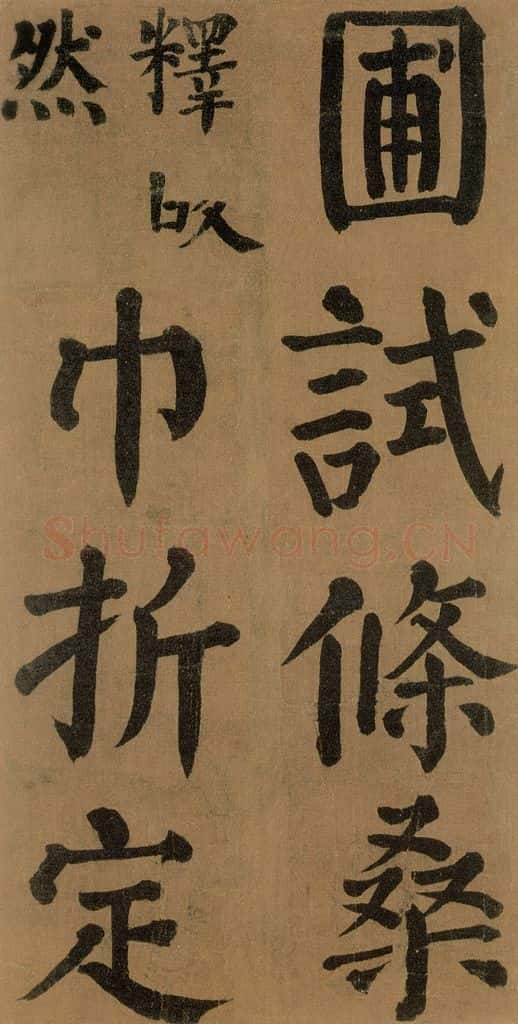 圃試條桑
釋
然
巾折定
Shufawang.CN